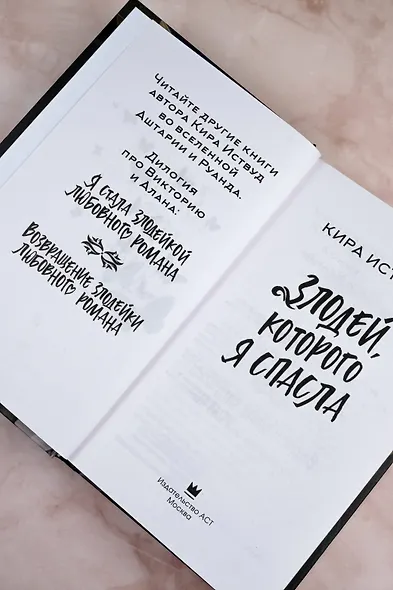 Читайте другие книги
автора Кира Иствуд
во вселенной
Аштарии и Руанда.
Дилогия
про Викторию
и Алана:
Я стала злодейкой
любовного романа
Возвращение злодейки
любовного романа
КИРА ИСТ
Злодей,
которого
я спасла
Издательство АСТ
Москва